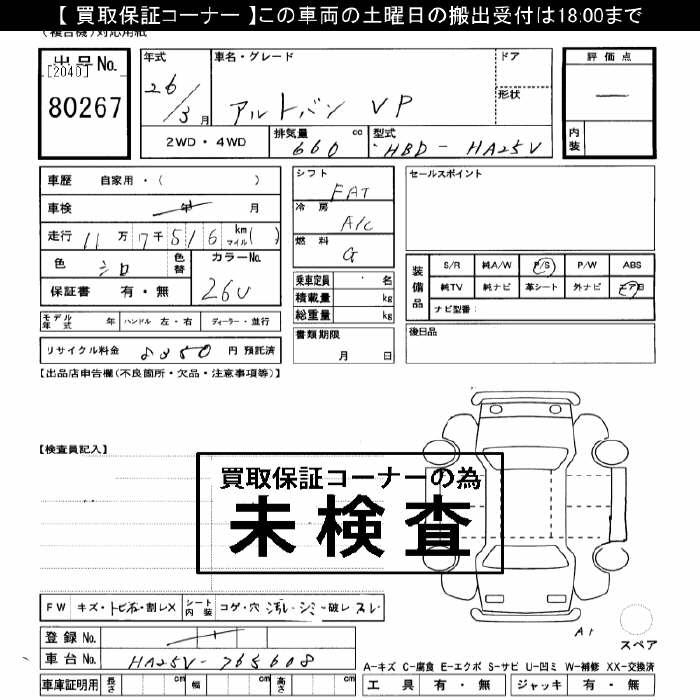 【 買取保証コーナー 】この車両の土曜日の搬出受付は18:00まで
(複合機)対応用紙
出品No.
[2040]
80267
年式
26/3月
車名・グレード
アルトバン VP
ドア
形状
評価点
—
内装
2WD・4WD
排気量 660 cc
型式 HBD-HA25V
車歴 自家用・( )
車検 年 月
走行 11万7千516 km マイル( )
色 シロ 色替
カラーNo. 26U
保証書 有・無
モデル年式 年 ハンドル 左・右 ディーラー・並行
リサイクル料金 8350 円 預託済
シフト FAT
冷房 A/C
燃料 G
乗車定員 ・ 名
積載量 kg
総重量 kg
書類期限
月 日
セールスポイント
装備品
S/R 純A/W P/S P/W ABS
純TV 純ナビ 革シート 外ナビ エアB
ナビ型番:
後日品
【出品店申告欄(不良箇所・欠品・注意事項等)】
【検査員記入】
買取保証コーナーの為
未検査
FW キズ・トビ石・割レX シート内装 コゲ・穴 汚レ・シミ・破レ スレ
登録No.
車台No. HA25V-765608
車庫証明用 長さ cm 幅 cm 高さ cm
A1
スペア
A-キズ C-腐食 E-エクボ S-サビ U-凹ミ W-補修 XX-交換済
工具 有・無 ジャッキ 有・無